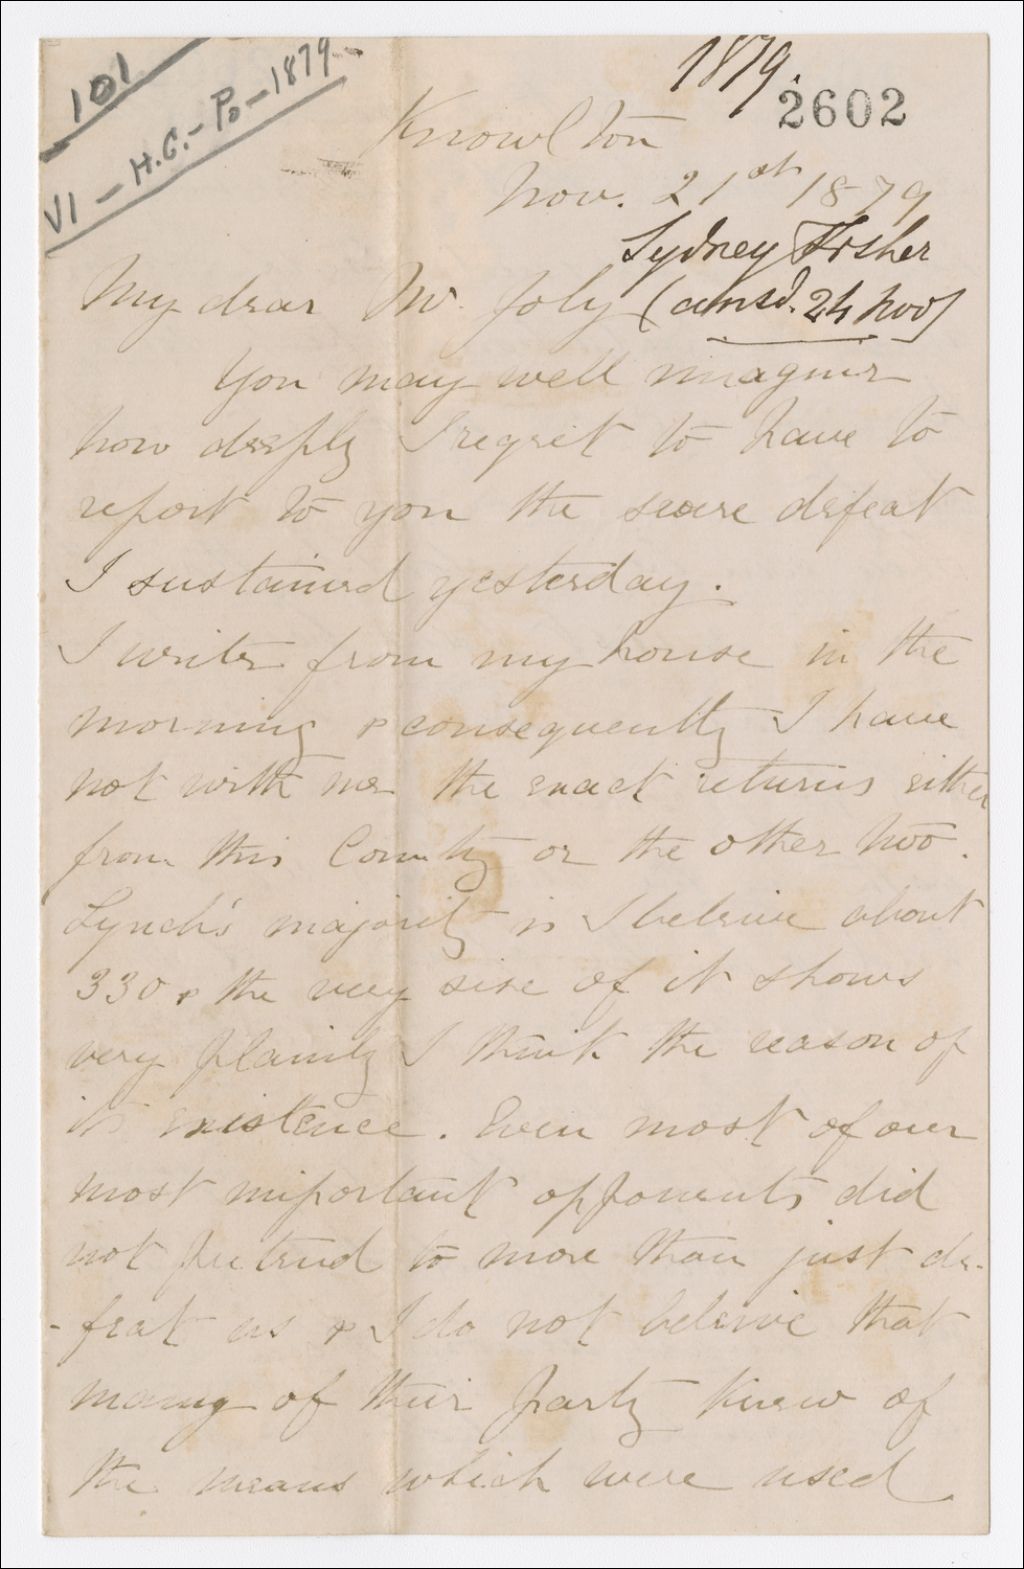 101
VI - H.C. - Po - 1879 -
1879.
2602
Knowlton
Nov. 21st 1879
Sydney Fisher
My dear Mr. Joly (ansd. 24 Nov)
You may well imagine
how deeply I regret to have to
report to you the severe defeat
I sustained yesterday.
I write from my house in the
morning & consequently I have
not with me the exact returns either
from this County or the other two.
Lynch's majority is I beleive about
330 & the very size of it shows
very plainly I think the reason of
its existence. Even most of our
most important opponents did
not pretend to more than just de-
-feat us & I do not beleive that
many of their party knew of
the means which were used